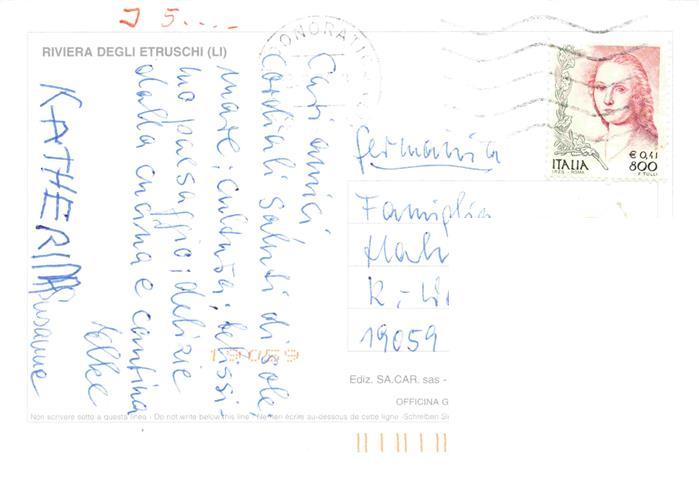 J 5....
RIVIERA DEGLI ETRUSCHI (LI)
Cari amici
Cordiali saluti di sole,
mare; cultura; belissi-
mo paesaggio; delizie
dalla cucina e cantina
Silke
Susanne
KATHERINA
ITALIA
€ 0,41
800
I.P.Z.S. - ROMA
F TULLI
Germania
Famiglia
Hah
K.-Li
19059
19059
Ediz. SA.CAR. sas -
OFFICINA G
Non scrivere sotto a questa linea - Do not write below this line - Ne rien écrire au-dessous de cette ligne - Schreiben Si